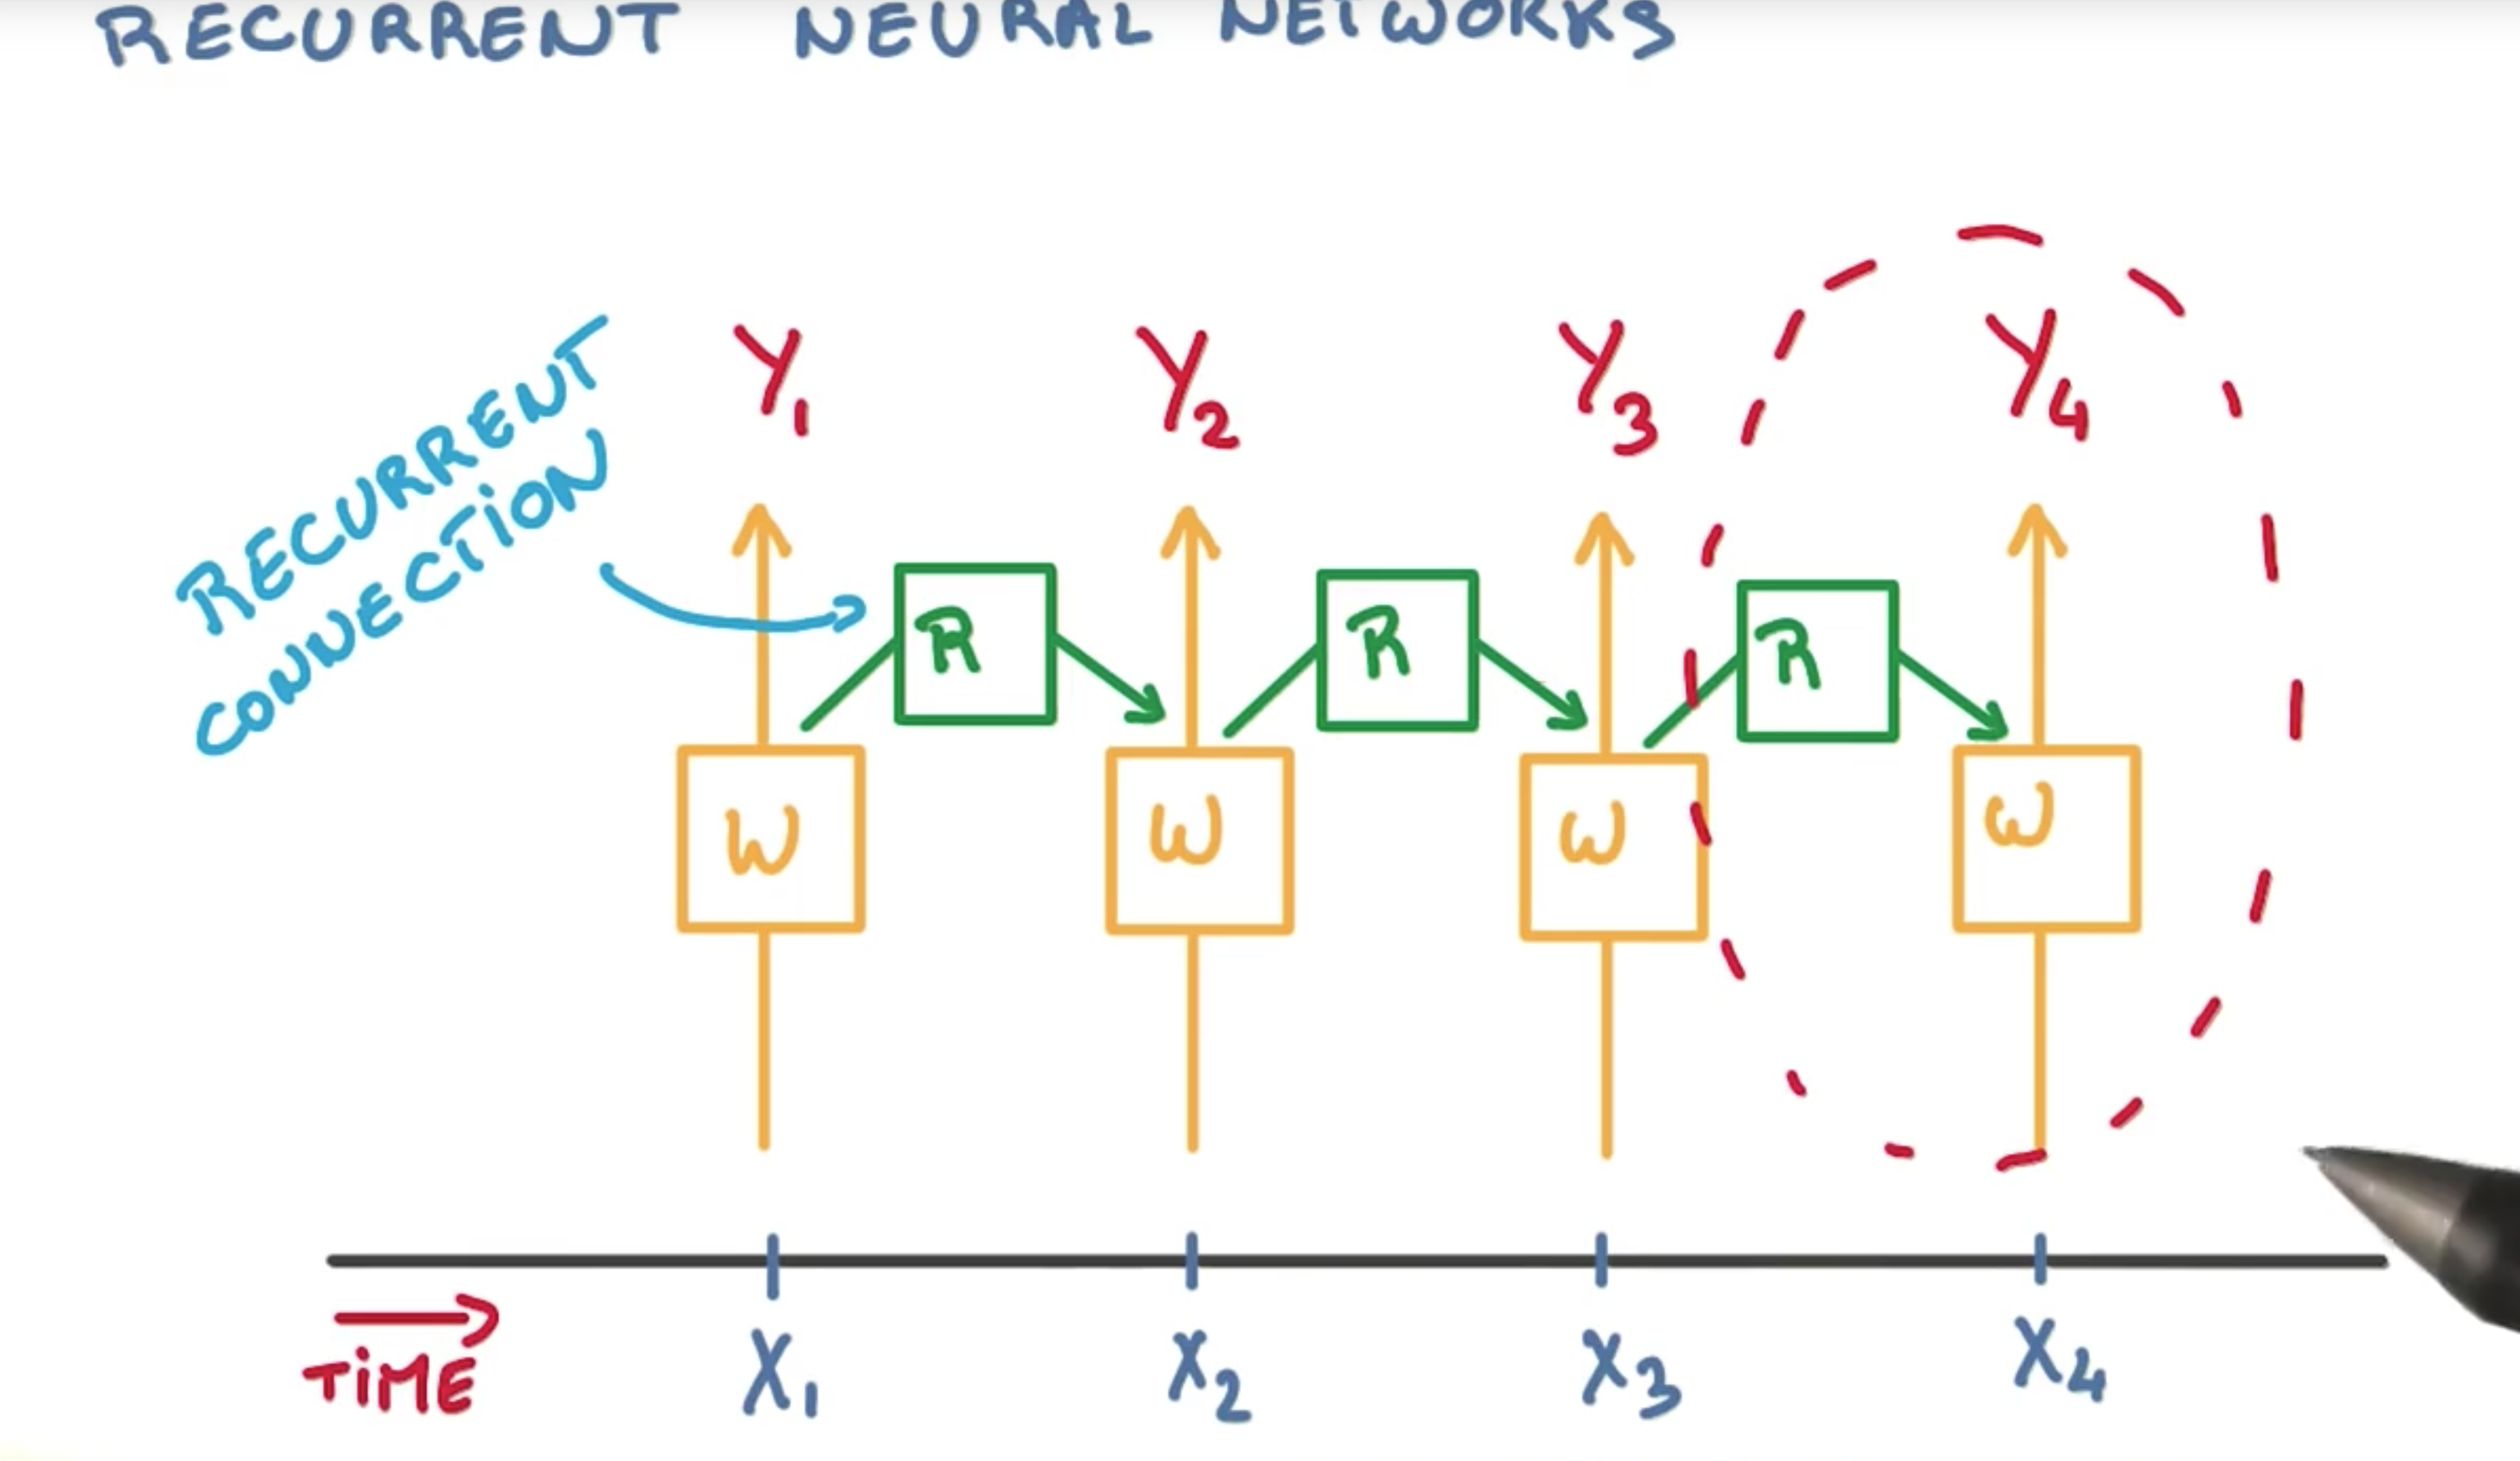 RECURRENT NEURAL NETWORKS
RECURRENT
CONNECTION
Y1 Y2 Y3 Y4
R R R
W W W W
TIME
X1 X2 X3 X4